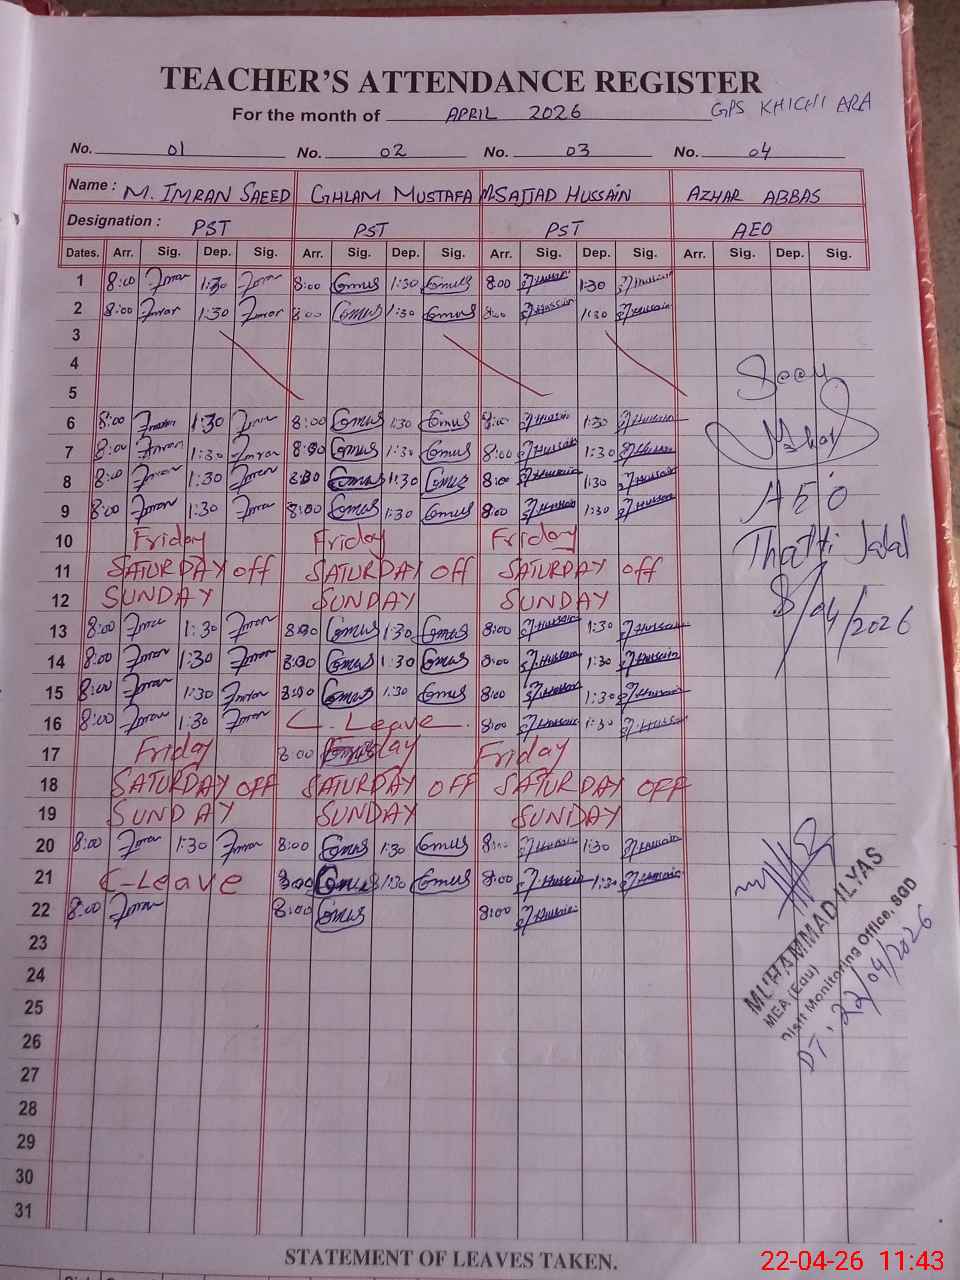 TEACHER'S ATTENDANCE REGISTER
For the month of APRIL 2026 GPS KHICHI ARA
No. 01 No. 02 No. 03 No. 04
Name : M. IMRAN SAEED GHLAM MUSTAFA M SAJJAD HUSSAIN AZHAR ABBAS
Designation : PST PST PST AEO
Dates. Arr. Sig. Dep. Sig. Arr. Sig. Dep. Sig. Arr. Sig. Dep. Sig. Arr. Sig. Dep. Sig.
1 8:00 Imran 1:30 Imran 8:00 Gmus 1:30 Gmus 8:00 Hussain 1:30 Hussain
2 8:00 Imran 1:30 Imran 8:00 Gmus 1:30 Gmus 8:00 Hussain 1:30 Hussain
3
4 Seen
5
6 8:00 Imran 1:30 Imran 8:00 Gmus 1:30 Gmus 8:00 Hussain 1:30 Hussain
7 8:00 Imran 1:30 Imran 8:00 Gmus 1:30 Gmus 8:00 Hussain 1:30 Hussain Azhar
8 8:00 Imran 1:30 Imran 8:00 Gmus 1:30 Gmus 8:00 Hussain 1:30 Hussain
9 8:00 Imran 1:30 Imran 8:00 Gmus 1:30 Gmus 8:00 Hussain 1:30 Hussain AEO
10 Friday Friday Friday Thatti Jalal
11 SATURDAY off SATURDAY off SATURDAY off
12 SUNDAY SUNDAY SUNDAY 8/04/2026
13 8:00 Imran 1:30 Imran 8:00 Gmus 1:30 Gmus 8:00 Hussain 1:30 Hussain
14 8:00 Imran 1:30 Imran 8:00 Gmus 1:30 Gmus 8:00 Hussain 1:30 Hussain
15 8:00 Imran 1:30 Imran 8:00 Gmus 1:30 Gmus 8:00 Hussain 1:30 Hussain
16 8:00 Imran 1:30 Imran C. Leave 8:00 Hussain 1:30 Hussain
17 Friday 8:00 Friday Friday
18 SATURDAY OFF SATURDAY OFF SATURDAY OFF
19 SUNDAY SUNDAY SUNDAY
20 8:00 Imran 1:30 Imran 8:00 Gmus 1:30 Gmus 8:00 Hussain 1:30 Hussain
21 C-Leave 8:00 Gmus 1:30 Gmus 8:00 Hussain 1:30 Hussain
22 8:00 Imran 8:00 Gmus 8:00 Hussain
23
24
25
26
27
28
29
30
31
MUHAMMAD ILYAS
MEA (Edu)
Distt Monitoring Office, SGD
DT. 22/04/2026
STATEMENT OF LEAVES TAKEN.
22-04-26 11:43